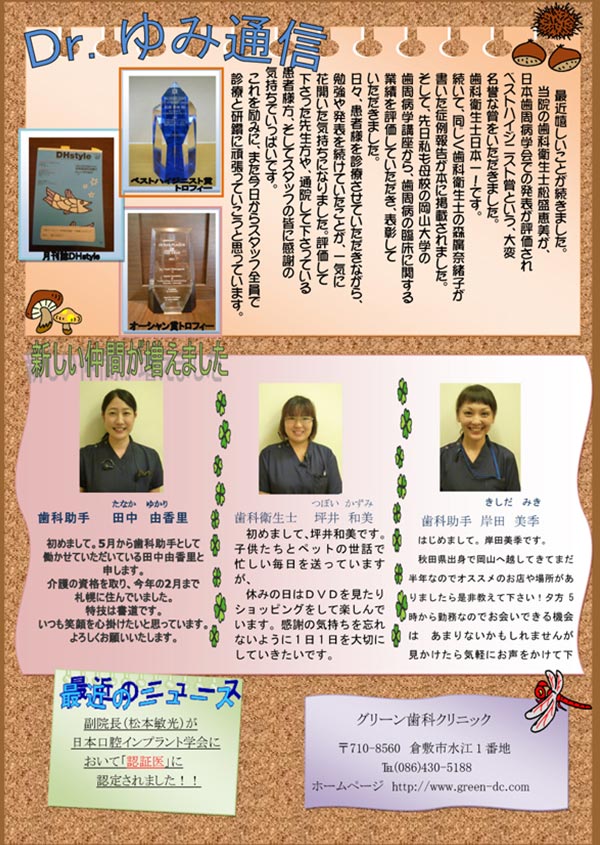 Dr. ゆみ通信
最近嬉しいことが続きました。
当院の歯科衛生士松盛恵美が、
日本歯周病学会での発表が評価され
ベストハイジニスト賞という、大変
名誉な賞をいただきました。
歯科衛生士日本一！です。
続いて、同じく歯科衛生士の森廣奈緒子が
書いた症例報告が本に掲載されました。
そして、先日私も母校の岡山大学の
歯周病学講座から、歯周病の臨床に関する
業績を評価していただき、表彰して
いただきました。
日々、患者様を診療させていただきながら、
勉強や発表を続けていたことが、一気に
花開いた気持ちになりました。評価して
下さった先生方や、通院して下さっている
患者様方、そしてスタッフの皆に感謝の
気持ちでいっぱいです。
これを励みに、また今日からスタッフ全員で
診療と研鑽に頑張っていこうと思っています。
ベストハイジニスト賞
トロフィー
DHstyle
月刊誌DHstyle
オーシャン賞トロフィー
新しい仲間が増えました
たなか ゆかり
歯科助手 田中 由香里
初めまして。5月から歯科助手として
働かせていただいている田中由香里と
申します。
介護の資格を取り、今年の2月まで
札幌に住んでいました。
特技は書道です。
いつも笑顔を心掛けたいと思っています。
よろしくお願いいたします。
つぼい かずみ
歯科衛生士 坪井 和美
初めまして、坪井和美です。
子供たちとペットの世話で
忙しい毎日を送っています
が、
休みの日はＤＶＤを見たり
ショッピングをして楽しんで
います。感謝の気持ちを忘れ
ないように１日１日を大切に
していきたいです。
きしだ みき
歯科助手 岸田 美季
はじめまして。岸田美季です。
秋田県出身で岡山へ越してきてまだ
半年なのでオススメのお店や場所があ
りましたら是非教えて下さい！夕方 5
時から勤務なのでお会いできる機会
は あまりないかもしれませんが
見かけたら気軽にお声をかけて下
最近のニュース
副院長（松本敏光）が
日本口腔インプラント学会に
おいて「認証医」に
認定されました！！
グリーン歯科クリニック
〒710-8560 倉敷市水江１番地
℡(086)430-5188
ホームページ http://www.green-dc.com